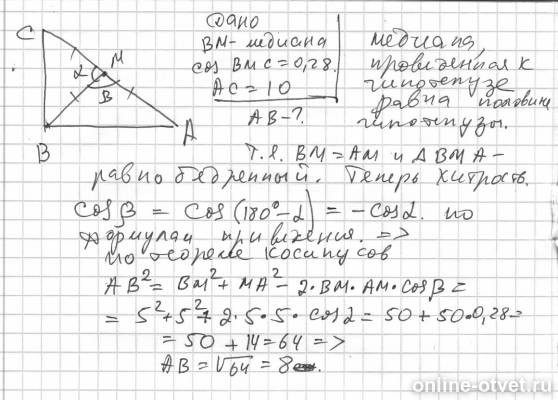 Дано
BM - медиана
cos BMC = 0,28.
AC = 10
AB - ?
C
M
α
β
B
A
медиана,
проведенная к
гипотенузе
равна половине
гипотенузы.
Т.е. BM = AM и Δ BMA -
равнобедренный. Теперь хитрость.
cos β = cos (180° - α) = - cos α. по
формулам приведения. =>
по теореме косинусов
AB² = BM² + MA² - 2 · BM · AM · cos β =
= 5² + 5² + 2 · 5 · 5 · cos α = 50 + 50 · 0,28 =
= 50 + 14 = 64 =>
AB = √64 = 8
online-otvet.ru